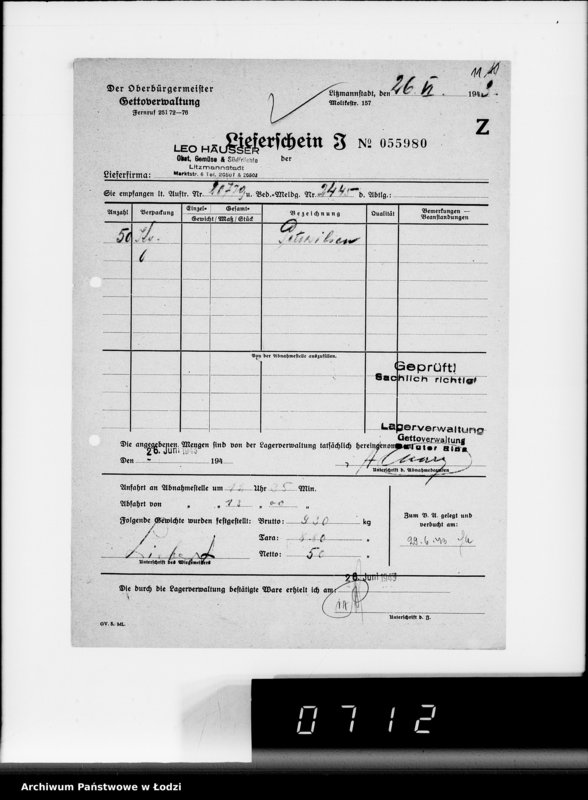 Der Oberbürgermeister
Gettoverwaltung
Fernruf 251 72—76
Litzmannstadt, den 26. VI. 1943.
Moltkestr. 157
Z
Lieferschein J № 055980
LEO HÄUSSER
Obst, Gemüse & Südfrüchte
Litzmannstadt
der
Lieferfirma:
Sie empfangen lt. Auftr. Nr. u. Bed.-Meldg. Nr. 2445 d. Abtlg.:
Anzahl Verpackung Einzel- Gesamt- Bezeichnung Qualität Bemerkungen — Beanstandungen
Gewicht / Maß / Stück
50
Von der Abnahmestelle auszufüllen.
Geprüft!
Sachlich richtig!
Lagerverwaltung
Gettoverwaltung
Die angegebenen Mengen sind von der Lagerverwaltung tatsächlich hereingenommen
Den 26. Juni 1943 194
Unterschrift d. Abnahmebeamten
Anfahrt an Abnahmestelle um Uhr 05 Min.
Abfahrt von " " 13 " 00 "
Folgende Gewichte wurden festgestellt: Brutto: 930 kg
Tara: 880 "
Netto: 50 "
Zum B. A. gelegt und
verbucht am:
29.6.43
Unterschrift des Wiegemeisters
26. Juni 1943
Die durch die Lagerverwaltung bestätigte Ware erhielt ich am:
Unterschrift d. J.
GV. S. ML.
0712
Archiwum Państwowe w Łodzi